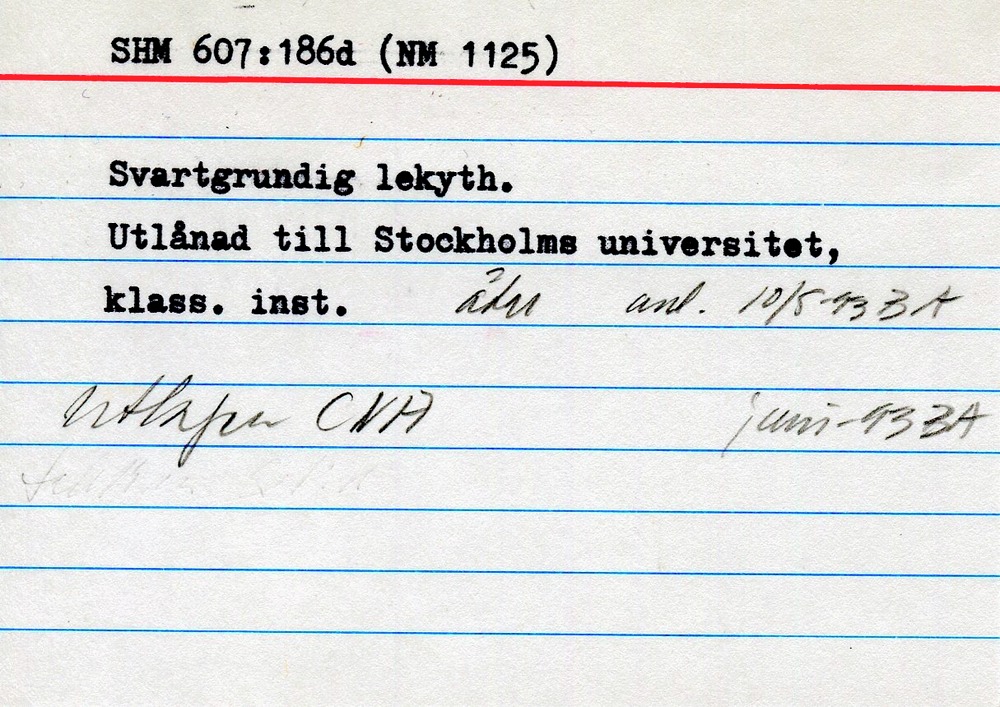 SHM 607:186d (NM 1125)
Svartgrundig lekyth.
Utlånad till Stockholms universitet,
klass. inst. åter anl. 10/5-93 BA
CNH juni-93 BA